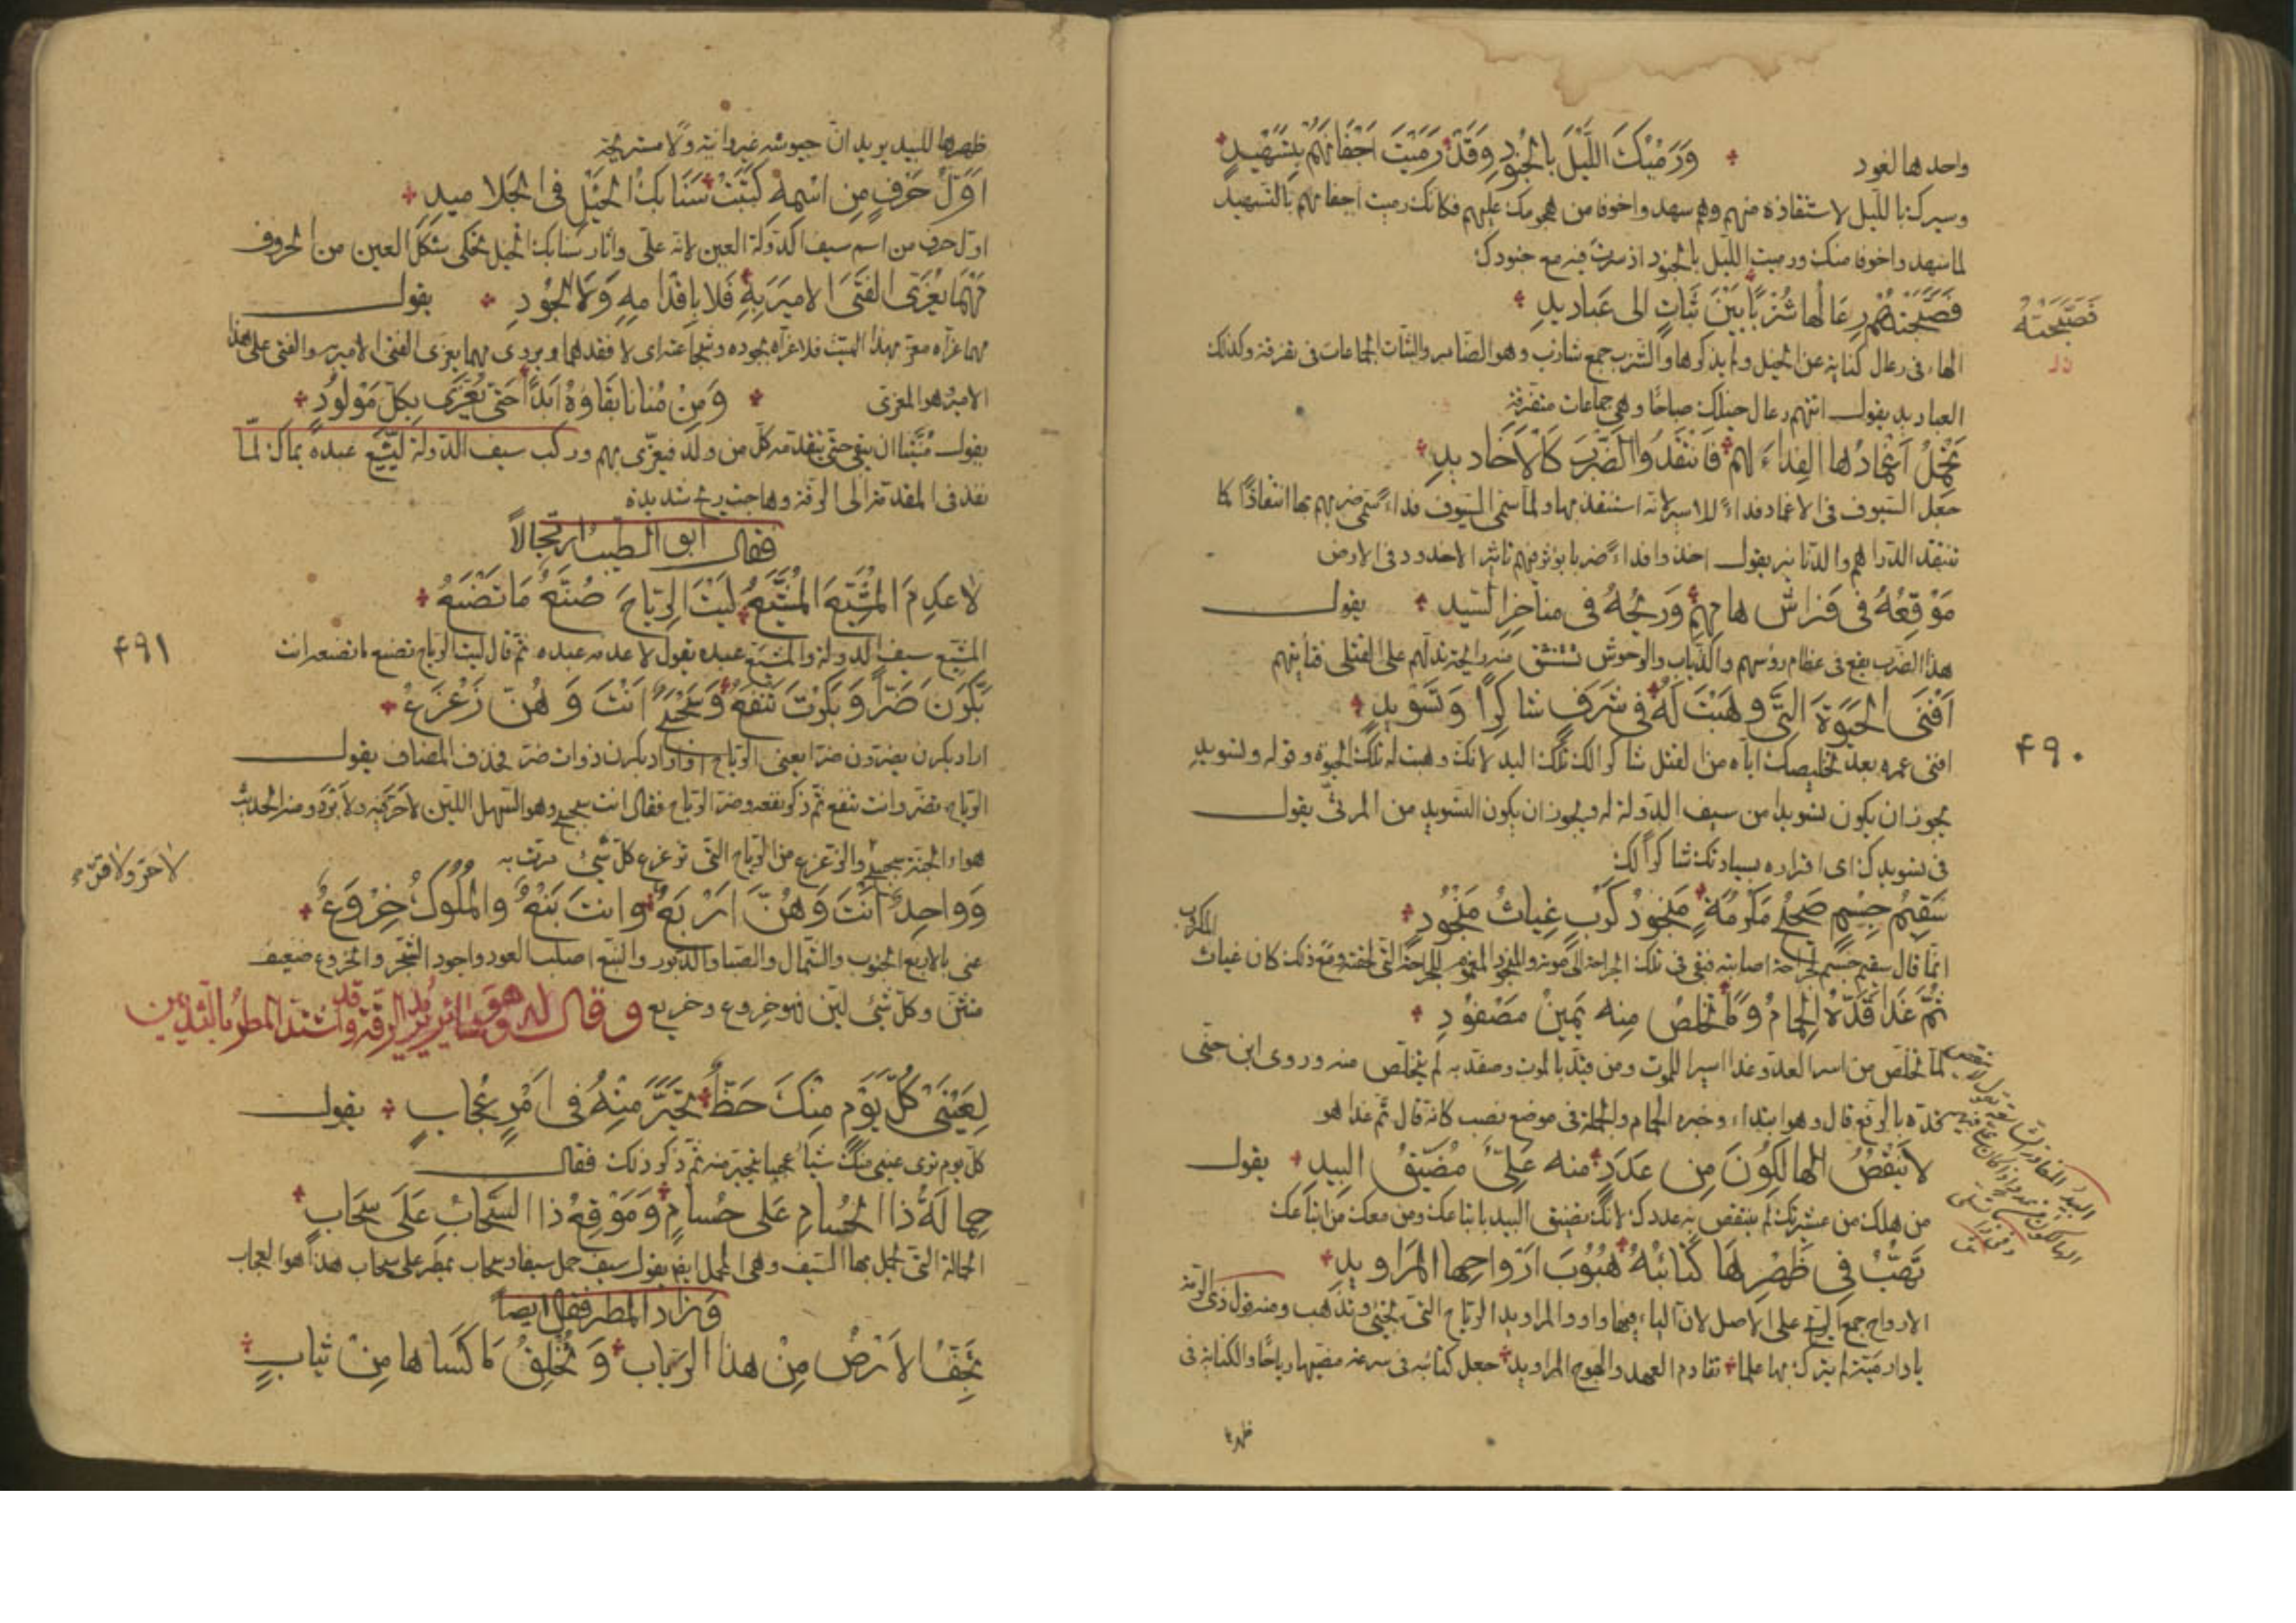 واحدها لغود ورميك الليل بالجنود وقد رميت اجفانهم بتسهيد
وسيرك بالليل لاستنقاذه منهم وهم سهد واخوفا من هجومك عليهم فكانك رميت اجفانهم بالتسهيد
لما سهدوا خوفا منك ورميت الليل بالجنود اذ سرت فيه مع جنودك
فصبحتهم رعالها شزبا بين ثبات الى عباديد
فصبحته
الهاء فى رعال كناية عن الخيل ولم يذكرها والشزب جمع شازب وهو الضامر والثبات الجماعات فى تفرقة وكذلك
العباديد يقول اتتهم رعال خيلك صباحا وهى جماعات متفرقة
تحمل اغمادها الفداء لهم فانتقدوا الضرب كالاخاديد
جعل السيوف فى الاغماد فداء للاسير لانه استنقذ بها ولما سمى السيوف فداء سمى ضربهم بها انتقادا كما
تنتقد الدراهم والدنانير يقول اخذوا فداء ضربا يؤثر فيهم تاثير الاخدود فى الارض
موقعه فى فراش هامهم وريحه فى مناخر السيد يقول
هذا الضرب يقع فى عظام رؤسهم والذياب والوحوش تستنشق منه رائحة تدلهم على القتلى فتأتيهم
افنى الحيوة التى وهبت له فى شرف شاكرا وتسويد
۴۹۰
افنى عمره بعد تخليصك اياه من القتل شاكرا لك تلك اليد لانك وهبت له تلك الحيوة وقوله وتسويد
يجوز ان يكون تسويدا من سيف الدولة له ويجوز ان يكون التسويد من المرثى يقول
فى تسويدك اى اقراره بسيادتك شاكرا لك
سقيم جسم صحيح مكرمة منجود كرب غياث منجود
المكرب
انما قال سقيم جسم لجراحة اصابته فبقى فى تلك الجراحة الى موته والمنجود المغموم للجراحة التى لحقته ومع ذلك كان غياث
ثم غدا قده الحمام وما تخلص منه يمين مصفود
لما تخلص من اسر العدو غدا اسيرا للموت ومن قيد بالموت وصفد به لم يتخلص منه وروى ابن جنى
قده بالرفع قال وهو ابتداء وخبره الحمام والجملة فى موضع نصب كانه قال ثم غدا هو
لا ينقص الهالكون من عدد منه على مضيق البيد يقول
من هلك من عشيرتك لم ينتقص به عددك لانك تضيق البيد باتباعك ومن معك من اتباعك
تهب فى ظهرها كتائبه هبوب ارواحها المراويد
الارواح جمع الريح على الاصل لان الياء فيها واو والمراويد الرياح التى تجئ وتذهب ومنه قول ذى الرمة
يا دار مية لم يترك بها علما تقادم العهد والهوج المراويد جعل كتائبه فى سرعة مضيها رياحا والكناية فى
ظهرها
ظهرها للبيد يريد ان جيوشه غير وانية ولا مستريحة
اول حرف من اسمه كتبت سنابك الخيل فى الجلاميد
اول حرف من اسم سيف الدولة العين لانه على واثار سنابك الخيل تحكى شكل العين من الحروف
مهما يعزى الفتى الامير به فلا باقدامه ولا الجود يقول
مهما عزاه معز بهذا الميت فلا عزاه بجوده وشجاعته اى لا فقدهما ويروى مهما يعزى الفتى الامير والفتى على هذا
الامير هو المعزى ومن منانا بقاؤه ابدا حتى يعزى بكل مولود
يقول منيتنا ان يبقى حتى يتقدمه كل من ولد فيعزى بهم وركب سيف الدولة ليشيع عبده يماك لما
نفذ فى المقدمة الى الرقة وهاجت ريح شديدة
فقال ابو الطيب ارتجالا
لا عدم المشيع المشيع ليت الرياح صنع ما تصنع
المشيع سيف الدولة والمشيع عبده يقول لا عدمه عبده ثم قال ليت الرياح تصنع ما تصنعه انت
۴۹۱
بكرن ضرا وبكرت تنفع وسجسج انت وهن زعزع
اراد بكرن يضررن ضرا يعنى الرياح او اراد بكرن ذوات ضر فحذف المضاف يقول
الرياح تضر وانت تنفع ثم ذكر نفعه وضر الرياح فقال انت سجسج وهو السهل اللين لا حر فيه ولا برد ومنه الحديث
لا حر ولا قر
هواء الجنة سجسج والزعزع من الرياح التى تزعزع كل شئ مرت به
وواحد انت وهن اربع وانت نبع والملوك خروع
عنى بالاربع الجنوب والشمال والصبا والدبور والنبع اصلب العود واجود الشجر والخروع ضعيف
متثن وكل شئ لين فهو خروع وخريع وقال له وهو سائر يريد الرقة وقد اشتد المطر بالثديين
لعينى كل يوم منك حظ تحير منه فى امر عجاب يقول
كل يوم ترى عينى منك شيئا عجيبا تتحير منه ثم ذكر ذلك فقال
حمالة ذا الحسام على حسام وموقع ذا السحاب على سحاب
الحمالة التى يحمل بها السيف وهى المحمل ايضا يقول سيف حمل سيفا وسحاب يمطر على سحاب هذا هو العجاب
وزاد المطر فقال ايضا
تجف الارض من هذا الرباب وتخلق ما كساها من ثياب